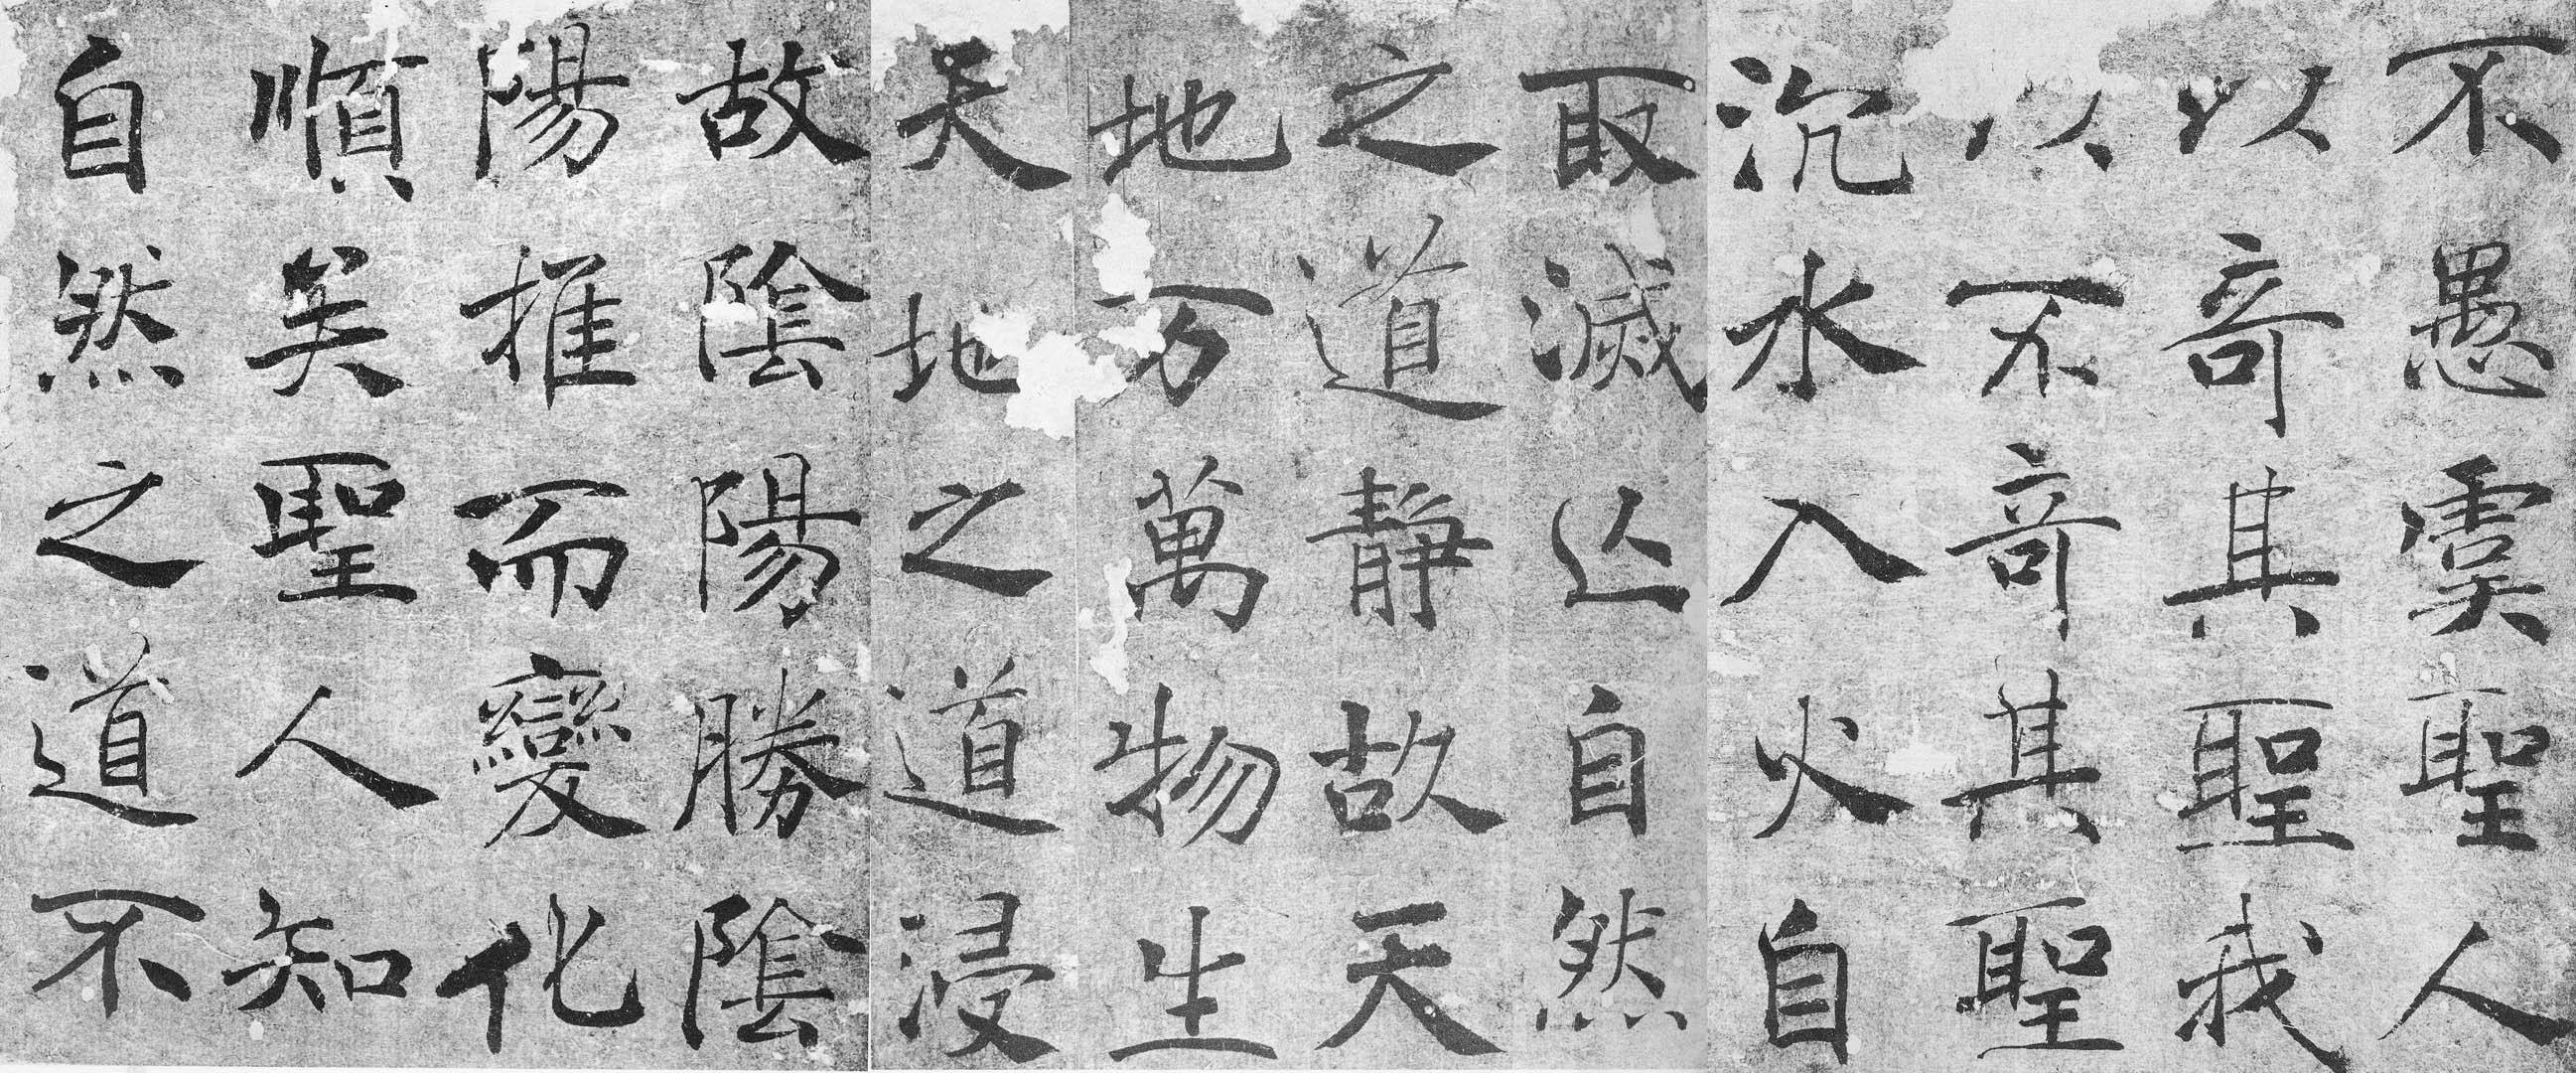 不愚虞聖人
以奇其聖我
以不奇其聖
沉水入火自
取滅亡自然
之道靜故天
地万萬物生
天地之道浸
故陰陽勝陰
陽推而變化
順矣聖人知
自然之道不